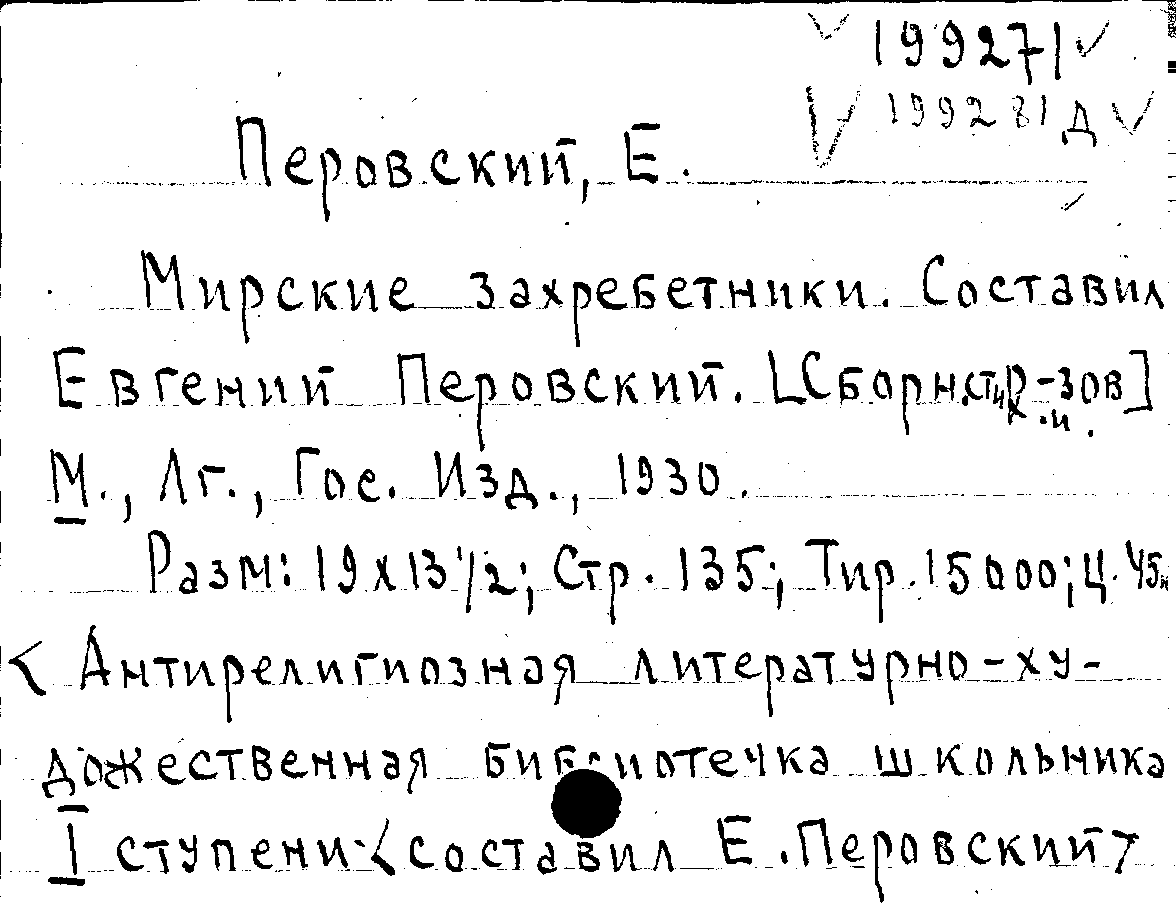 199271
199281 д
Перовский, Е.
Мирские захребетники. Составил
Евгений Перовский. [Сборн. стих. и р-зов]
М., Лг., Гос. Изд., 1930.
Разм: 19х13 1/2; Стр. 135; Тир. 15000; Ц. 45к
< Антирелигиозная литературно-ху-
дожественная библиотечка школьника
I ступени < составил Е. Перовский >